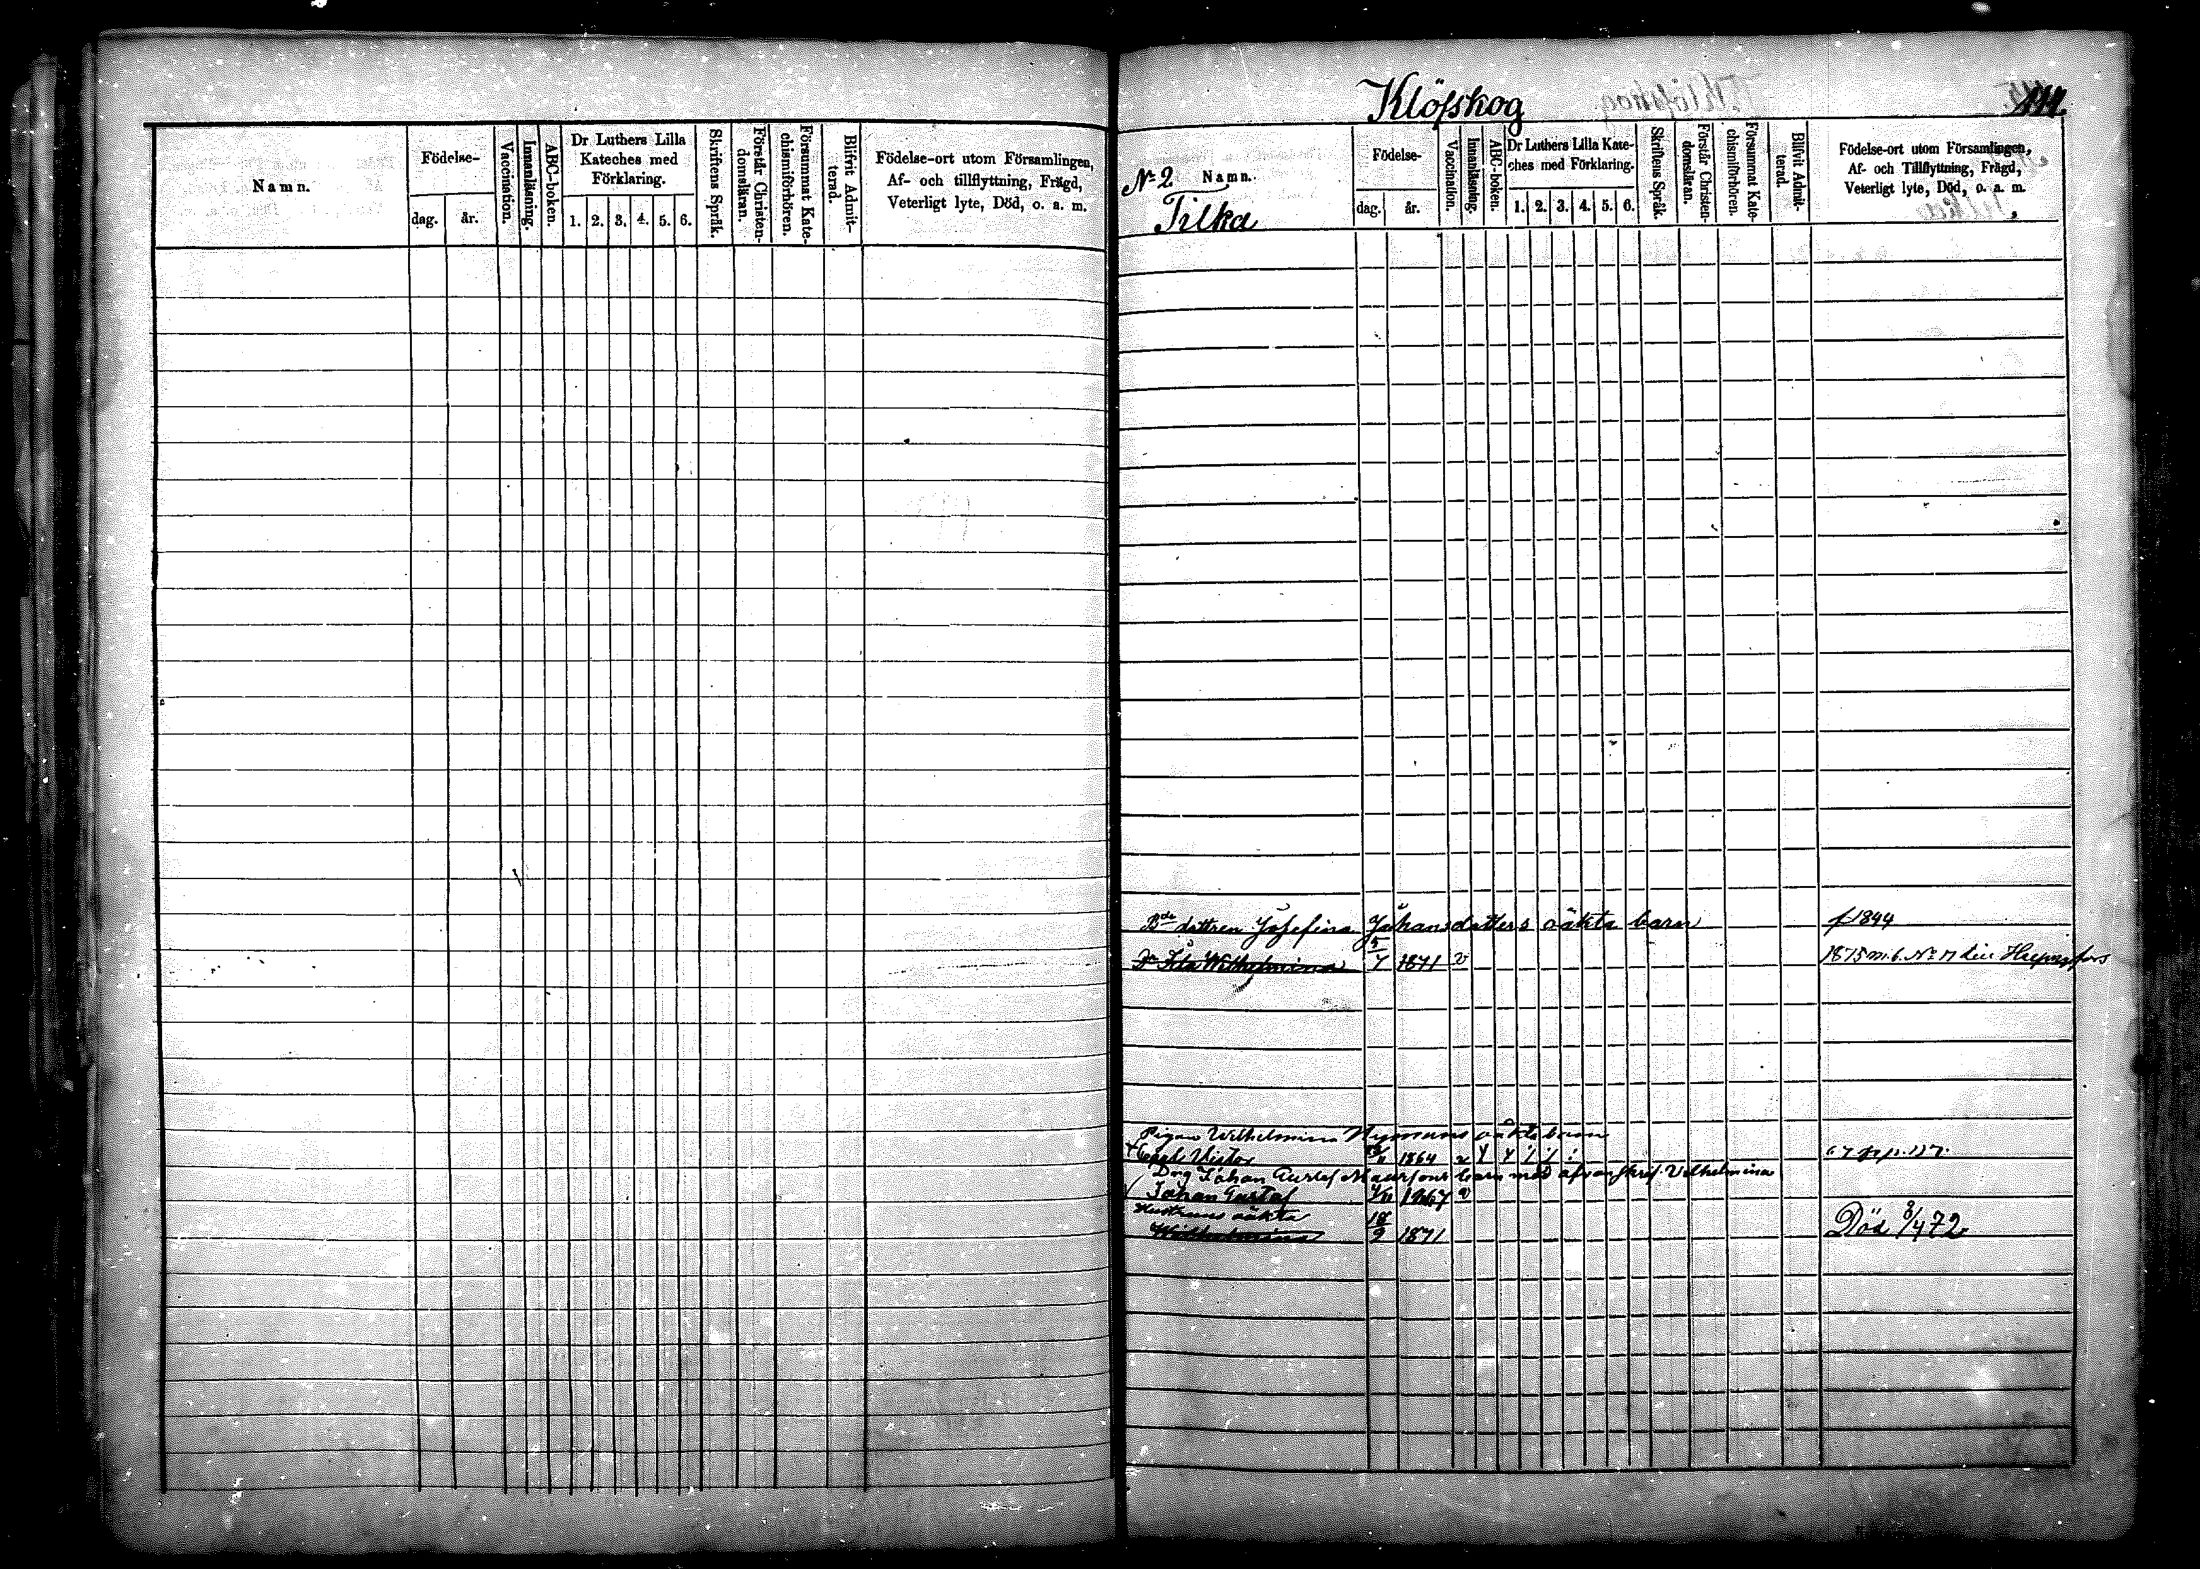 Namn.
Födelse-
dag.
år.
Vaccination.
Innanläsning.
ABC-boken.
Dr Luthers Lilla
Kateches med
Förklaring.
1. 2. 3. 4. 5. 6.
Skriftens Språk.
Förstår Christen-
domsläran.
Försummat Kate-
chismiförhören.
Blifvit Admit-
terad.
Födelse-ort utom Församlingen,
Af- och tillflyttning, Frägd,
Veterligt lyte, Död, o. a. m.
Klöfskog
No 2
Namn.
Tilka
Födelse-
dag.
år.
Vaccination.
Innanläsning.
ABC-boken.
Dr Luthers Lilla Kate-
ches med Förklaring.
1. 2. 3. 4. 5. 6.
Skriftens Språk.
Förstår Christen-
domsläran.
Försummat Kate-
chismiförhören.
Blifvit Admit-
terad.
Födelse-ort utom Församlingen,
Af- och Tillflyttning, Frägd,
Veterligt lyte, Död, o. a. m.
Bde dottren Josefina Johansdotters oäkta barn f 1844
Wilhelmina 5/7 1871 v 1875 m.b. No 17
Pigan Wilhelmina Nymans oäkta barn
Victor 1864
Johan Gustaf barn med Vilhelmina
Johan Gustaf 1867 v
Hustruns oäkta
Wilhelmina 18/9 1871 Död 8/4 72